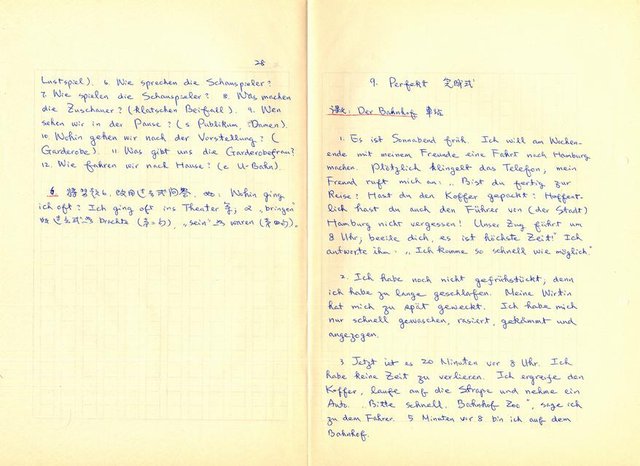 28
Lustspiel). 6. Wie sprechen die Schauspieler?
7. Wie spielen die Schauspieler? 8 Was machen
die Zuschauer? (klatschen Beifall). 9. Wen
sehen wir in der Pause? (s Publikum, Damen).
10. Wohin gehen wir nach der Vorstellung? (
Garderobe). 11 Was gibt uns die Garderobefrau?
12. Wie fahren wir nach Hause? (e U-Bahn).
6 将习题6. 改用过去式问答. 如: Wohin ging
ich oft? Ich ging oft ins Theater 等, „bringen"
的过去式为 brachte (第一句) „sein" 为 waren (第四句).
9. Perfekt 完成式
课文. Der Bahnhof 车站
1. Es ist Sonnabend früh. Ich will am Wochen-
ende mit meinem Freunde eine Fahrt nach Hamburg
machen. Plötzlich klingelt das Telefon, mein
Freund ruft mich an: „Bist du fertig zur
Reise? Hast du den Koffer gepackt? Hoffent-
lich hast du auch den Führer von (der Stadt)
Hamburg nicht vergessen! Unser Zug fährt um
8 Uhr, beeile dich, es ist höchste Zeit!" Ich
antworte ihm: „Ich komme so schnell wie möglich."
2. Ich habe noch nicht gefrühstückt, denn
ich habe zu lange geschlafen. Meine Wirtin
hat mich zu spät geweckt. Ich habe mich
nur schnell gewaschen, rasiert, gekämmt und
angezogen.
3 Jetzt ist es 20 Minuten vor 8 Uhr. Ich
habe keine Zeit zu verlieren. Ich ergreife den
Koffer, laufe auf die Straße und nehme ein
Auto. „Bitte schnell. Bahnhof Zoo", sage ich
zu dem Fahrer. 5 Minuten vor 8 bin ich auf dem
Bahnhof.